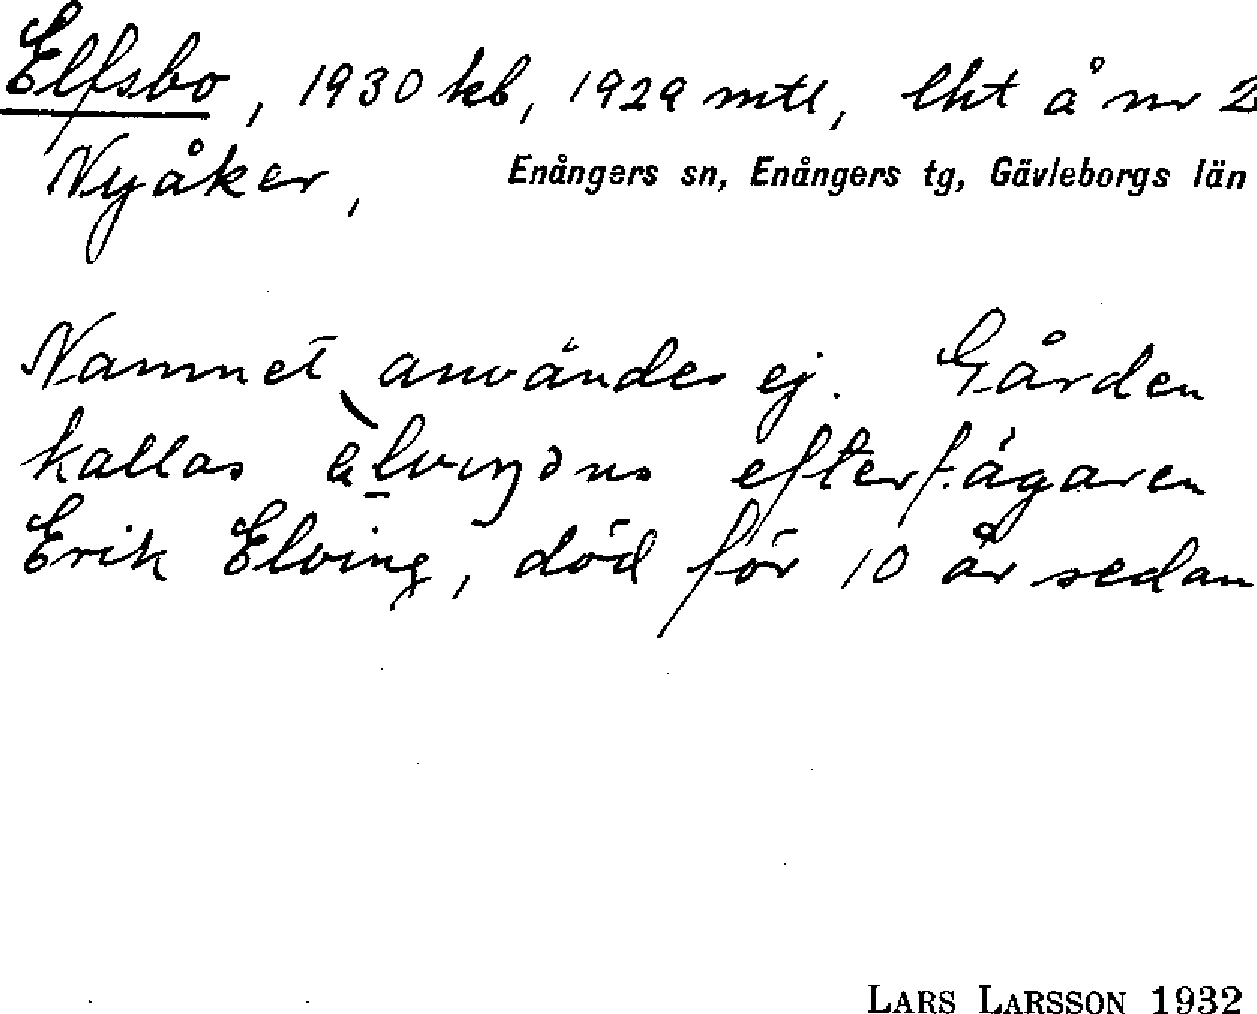 Elfsbo, 1930 kb, 1929 mtl, lht å nr 2
Nyåker, Enångers sn, Enångers tg, Gävleborgs län
Namnet användes ej. Gården
kallas efter f. ägaren
Erik Elving, död för 10 år sedan
LARS LARSSON 1932